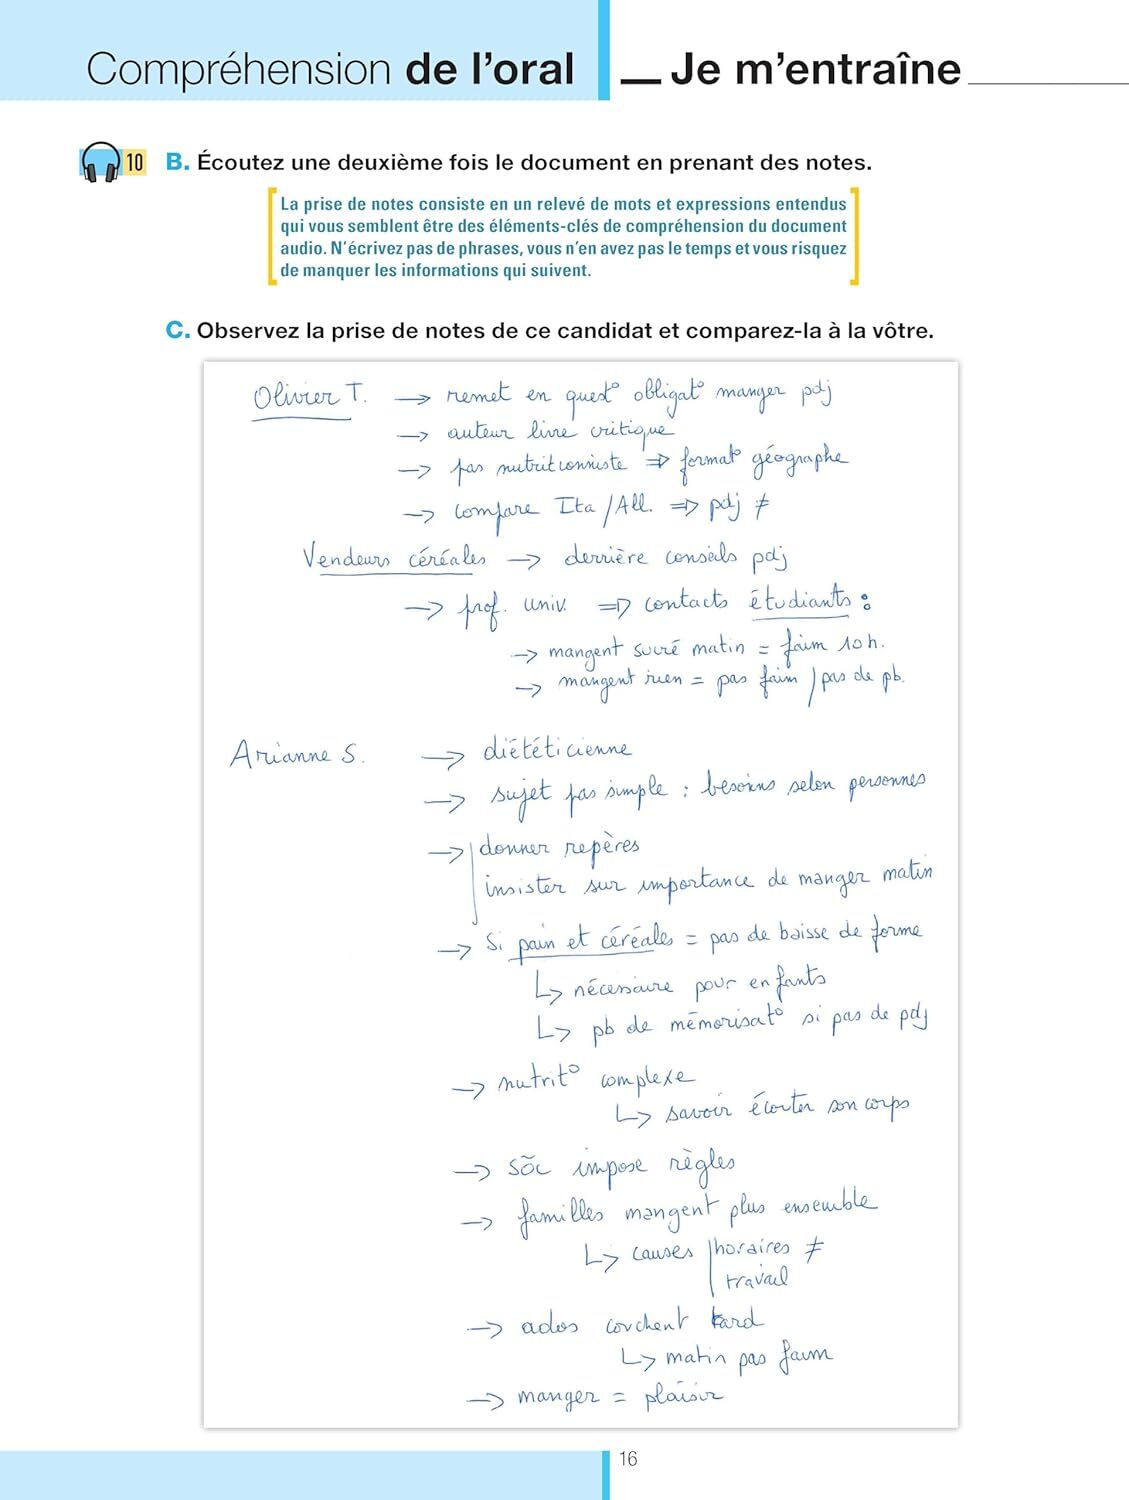 Compréhension de l'oral — Je m'entraîne
10 B. Écoutez une deuxième fois le document en prenant des notes.
La prise de notes consiste en un relevé de mots et expressions entendus
qui vous semblent être des éléments-clés de compréhension du document
audio. N'écrivez pas de phrases, vous n'en avez pas le temps et vous risquez
de manquer les informations qui suivent.
C. Observez la prise de notes de ce candidat et comparez-la à la vôtre.
Olivier T. → remet en quest° obligat° manger pdj
→ auteur livre critique
→ pas nutritionniste ⇒ format° géographe
→ compare Ita/All. ⇒ pdj ≠
Vendeurs céréales → derrière conseils pdj
→ prof. univ. ⇒ contacts étudiants :
→ mangent sucré matin = faim 10h.
→ mangent rien = pas faim / pas de pb.
Arianne S. → diététicienne
→ sujet pas simple : besoins selon personnes
→ donner repères
insister sur importance de manger matin
→ Si pain et céréales = pas de baisse de forme
↳ nécessaire pour enfants
↳ pb de mémorisat° si pas de pdj
→ nutrit° complexe
↳ savoir écouter son corps
→ sõc impose règles
→ familles mangent plus ensemble
↳ causes horaires ≠
travail
→ ados couchent tard
↳ matin pas faim
→ manger = plaisir
16